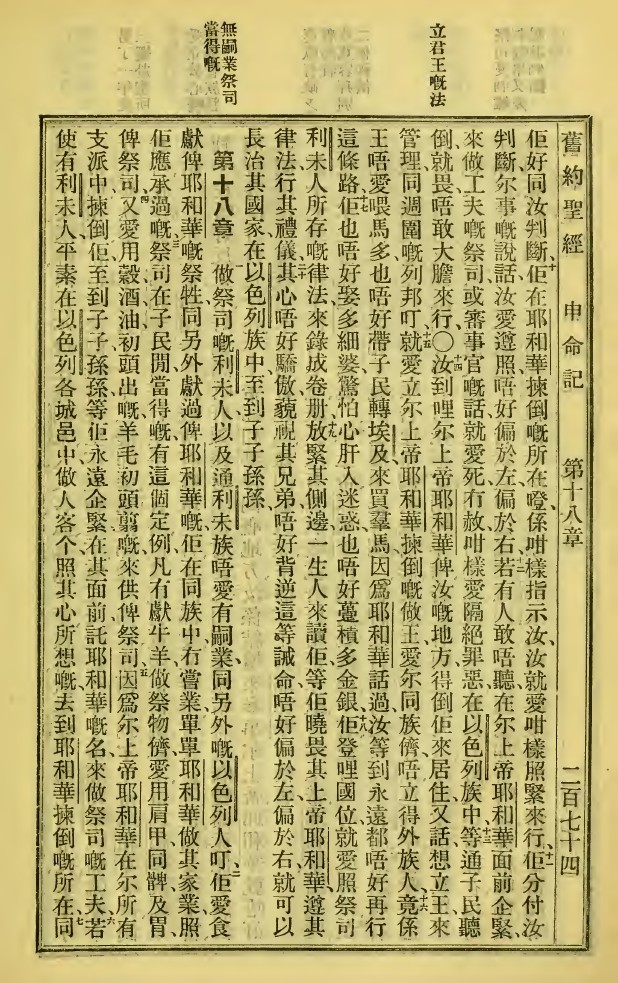 立君王嘅法
無嗣業祭司
當得嘅
舊約聖經 申命記 第十八章 二百七十四
佢好同汝判斷、十佢在耶和華揀倒嘅所在噔係咁樣指示汝、汝就愛咁樣照緊來行、十一佢分付汝
判斷尔事嘅說話汝愛遵照唔好偏於左偏於右、十二若有人敢唔聽在尔上帝耶和華面前企緊、
來做工夫嘅祭司或審事官嘅話就愛死冇赦咁樣愛隔絕罪惡在以色列族中、十三等通子民聽
倒就畏唔敢大膽來行、〇十四汝到哩尔上帝耶和華俾汝嘅地方得倒佢來居住又話想立王來
管理同週圍嘅列邦叮、十五就愛立尔上帝耶和華揀倒嘅做王愛尔同族儕唔立得外族人、十六竟係
王唔愛喂馬多也唔好帶子民轉埃及來買羣馬因爲耶和華話過汝等到永遠都唔好再行
這條路、十七佢也唔好娶多細婆驚怕心肝入迷惑也唔好蘲積多金銀、十八佢登哩國位就愛照祭司
利未人所存嘅律法來錄成卷册、十九放緊其側邊一生人來讀佢等佢曉畏其上帝耶和華、遵其
律法行其禮儀、二十其心唔好驕傲藐視其兄弟唔好背逆這等誡命唔好偏於左偏於右就可以
長治其國家在以色列族中至到子子孫孫、
第十八章 一做祭司嘅利未人以及通利未族唔愛有嗣業同另外嘅以色列人叮佢愛食
獻俾耶和華嘅祭牲同另外獻過俾耶和華嘅、二佢在同族中冇嘗業單單耶和華做其家業照
佢應承過嘅、三祭司在子民閒當得嘅有這個定例凡有獻牛羊做祭物儕愛用肩甲同髀及胃
俾祭司、四又愛用穀酒油初頭出嘅羊毛初頭翦嘅來供俾祭司、五因爲尔上帝耶和華在尔所有
支派中揀倒佢至到子子孫孫等佢永遠企緊在其面前託耶和華嘅名來做祭司嘅工夫、六若
使有利未人平素在以色列各城邑中做人客个照其心所想嘅去到耶和華揀倒嘅所在、七同